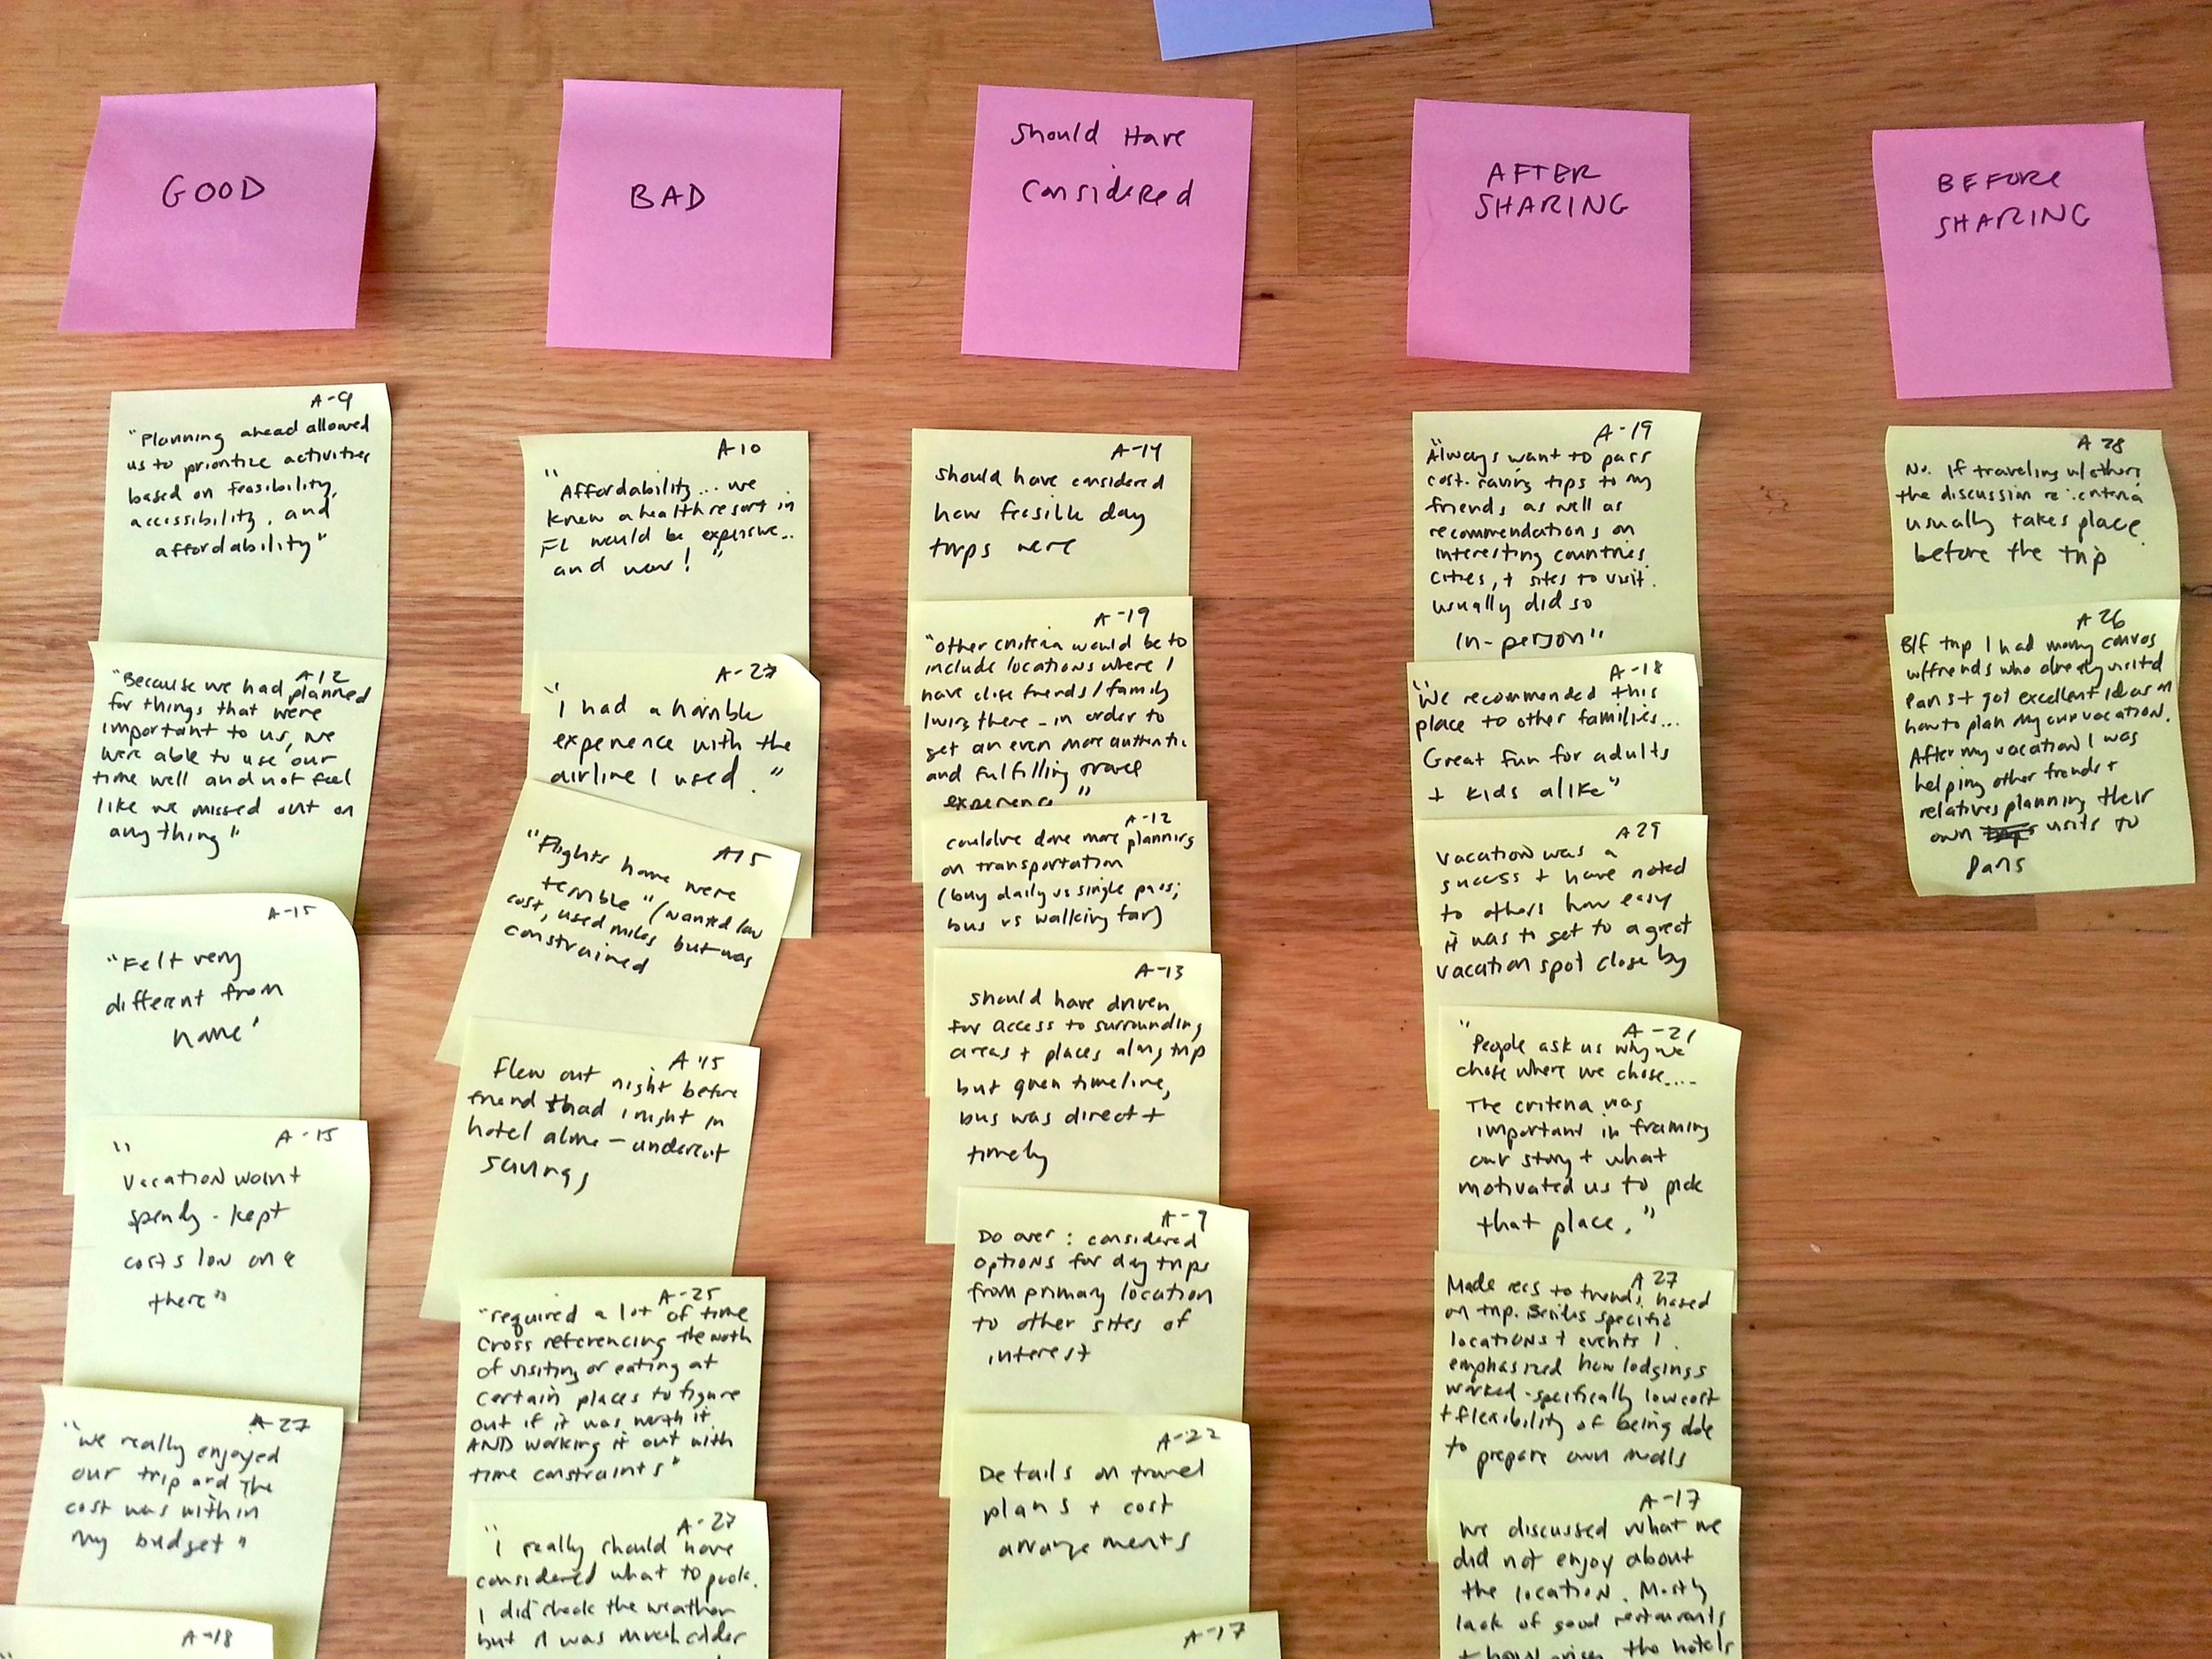 GOOD
A-9
"Planning ahead allowed
us to prioritize activities
based on feasibility,
accessibility, and
affordability"
A12
"Because we had planned
for things that were
important to us, we
were able to use our
time well and not feel
like we missed out on
anything"
A-15
"Felt very
different from
home'
A-15
"
vacation wasn't
spendy - kept
costs low once
there"
A-27
"we really enjoyed
our trip and the
cost was within
my budget"
A-18
BAD
A-10
"
Affordability... we
knew a health resort in
FL would be expensive..
and wow! "
A-27
"I had a horrible
experience with the
airline I used."
A15
"Flights home were
terrible" (wanted low
cost, used miles but was
constrained
A-15
flew out night before
friend + had 1 night in
hotel alone - undercut
savings
A-25
"required a lot of time
cross referencing the worth
of visiting or eating at
certain places to figure
out if it was worth it
AND working it out with
time constraints"
A-27
"i really should have
considered what to pack.
I did check the weather
but it was much colder
Should Have
Considered
A-14
should have considered
how feasible day
trips were
A-19
"other criteria would be to
include locations where I
have close friends/family
living there - in order to
get an even more authentic
and fulfilling travel
experience"
A-12
could've done more planning
on transportation
(buy daily vs single pass;
bus vs walking far)
A-13
should have driven
for access to surrounding
areas + places along trip
but given timeline,
bus was direct +
timely
A-9
Do over: considered
options for day trips
from primary location
to other sites of
interest
A-22
Details on travel
plans + cost
arrangements
A-17
AFTER
SHARING
A-19
"Always want to pass
cost-saving tips to my
friends as well as
recommendations on
interesting countries
cities, + sites to visit.
usually did so
in-person"
A-18
"We recommended this
place to other families...
Great fun for adults
+ kids alike"
A29
vacation was a
success + have noted
to others how easy
it was to get to a great
vacation spot close by
A-21
"People ask us why we
chose where we chose....
The criteria was
important in framing
our story + what
motivated us to pick
that place."
A27
Made recs to friends based
on trip. Besides specific
locations + events I
emphasized how lodgings
worked - specifically low cost
+ flexibility of being able
to prepare own meals
A-17
We discussed what we
did not enjoy about
the location. Mostly
lack of good restaurants
the hotels
BEFORE
SHARING
A 28
No. If traveling w/others,
the discussion re: criteria
usually takes place
before the trip
A 26
B/f trip I had many convos
w/friends who already visited
Paris + got excellent ideas on
how to plan my own vacation.
After my vacation I was
helping other friends +
relatives planning their
own visits to
Paris